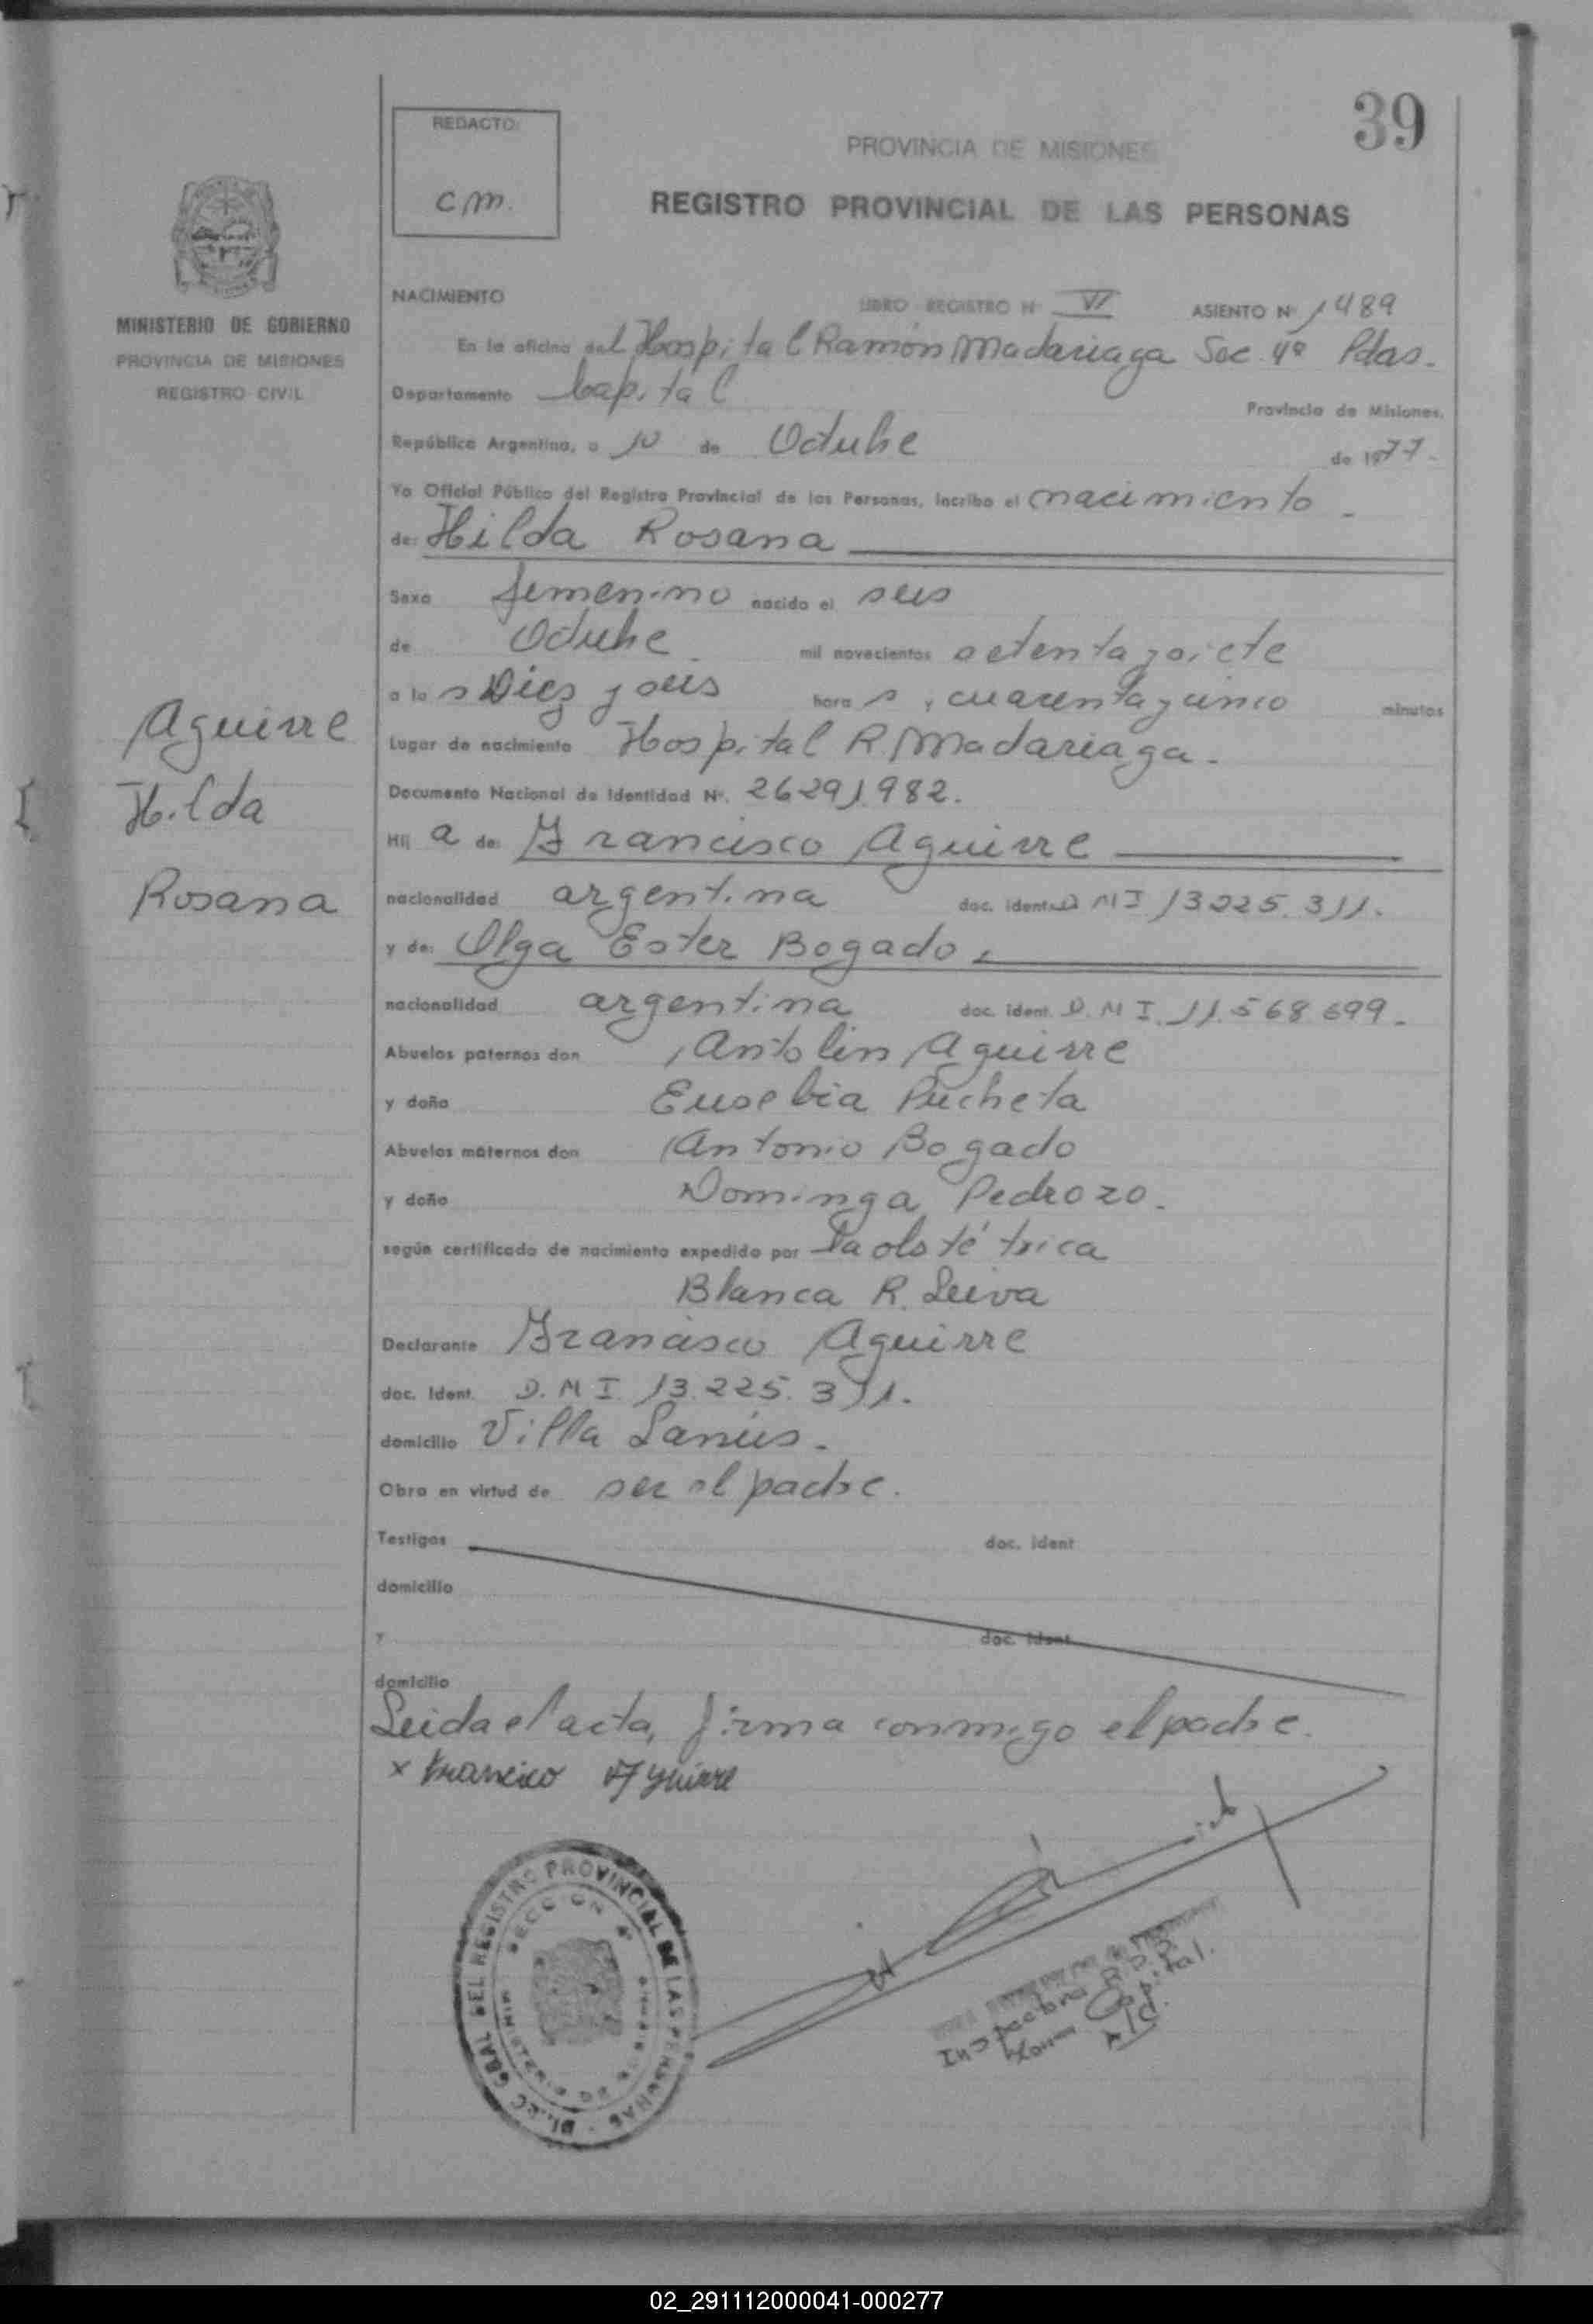 39
REDACTO:
C.M.
PROVINCIA DE MISIONES
REGISTRO PROVINCIAL DE LAS PERSONAS
MINISTERIO DE GOBIERNO
PROVINCIA DE MISIONES
REGISTRO CIVIL
NACIMIENTO LIBRO REGISTRO Nº VI ASIENTO Nº 1489
En la oficina del Hospital Ramón Madariaga Sec. 4ª Pdas.
Departamento Capital Provincia de Misiones,
República Argentina, a 10 de Octubre de 1977.
Yo Oficial Público del Registro Provincial de las Personas, incribo el nacimiento
de: Hilda Rosana
Sexo femenino nacido el seis
de Octubre mil novecientos setenta y siete
a la s Diez y seis hora s, cuarenta y cinco minutos
Lugar de nacimiento Hospital R. Madariaga.
Documento Nacional de Identidad Nº. 26291982.
Hij a de: Francisco Aguirre
nacionalidad argentina doc. ident. D M I 13.225.311.
y de: Olga Ester Bogado.
nacionalidad argentina doc. ident. D. M I. 11.568.699.
Abuelos paternos don Antolin Aguirre
y doña Eusebia Pucheta
Abuelos maternos don Antonio Bogado
y doña Dominga Pedrozo.
según certificado de nacimiento expedido por la obstétrica
Blanca R. Leiva
Declarante Francisco Aguirre
doc. Ident. D. M I. 13.225.311.
domicilio Villa Lanús.
Obra en virtud de ser el padre.
Testigos doc. ident
domicilio
y doc. ident
domicilio
Leida el acta, firma conmigo el padre.
x Francisco Aguirre
Aguirre
Hilda
Rosana
DIREC. GRAL DEL REGISTRO PROVINCIAL DE LAS PERSONAS
SECCION 4ª
Inspectora R.P.P.
Zona Capital.
02_291112000041-000277